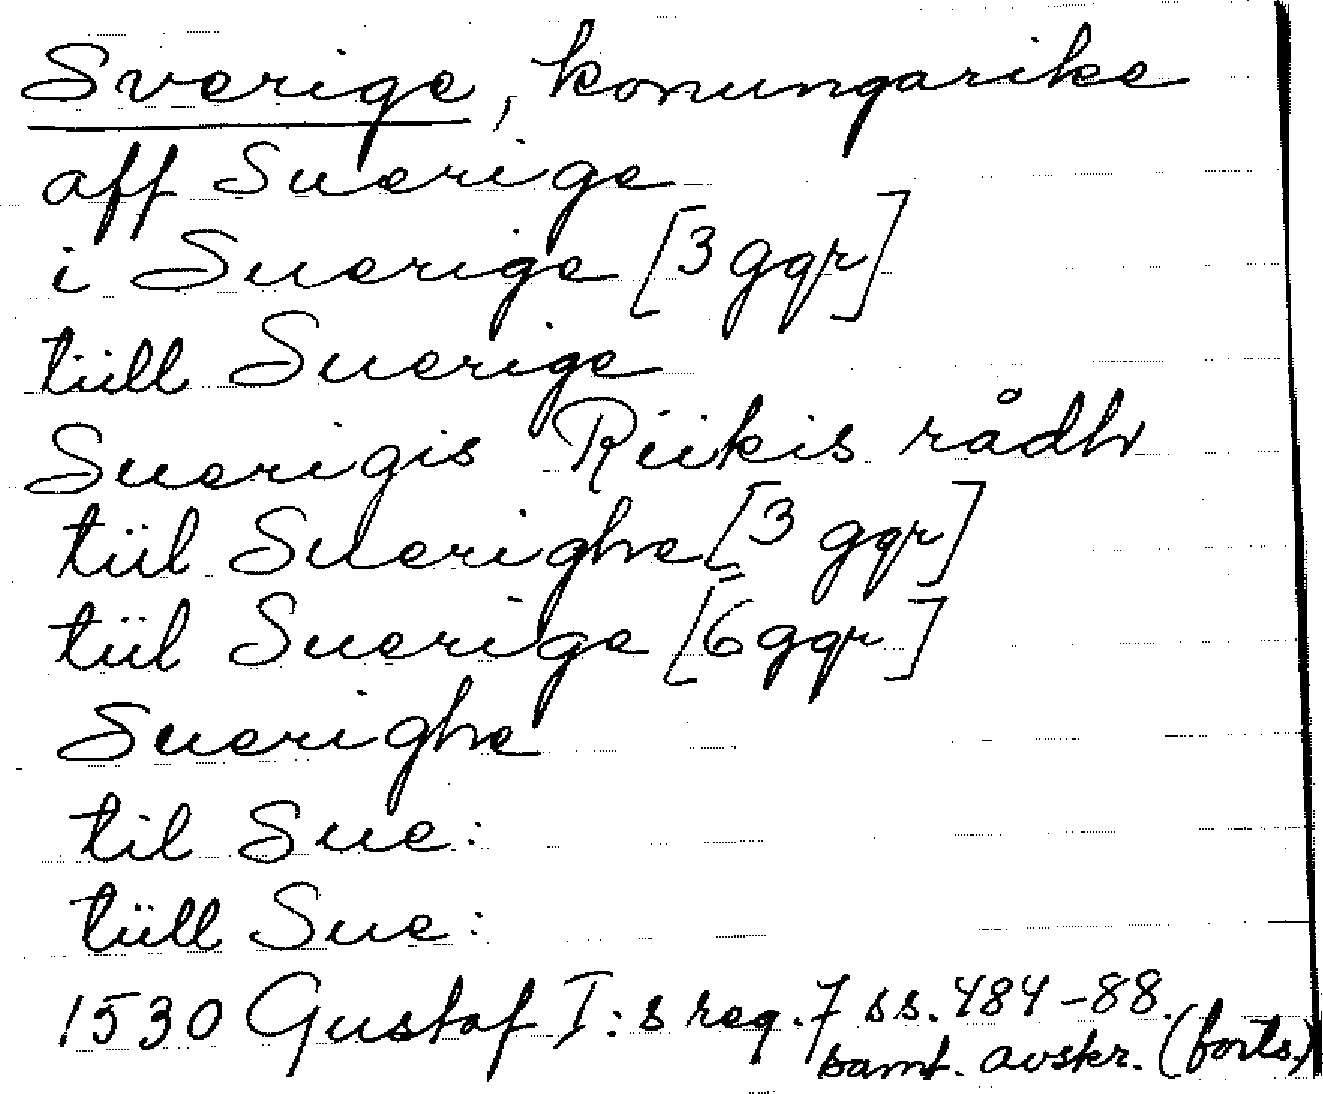 Sverige, konungarike
aff Suerige
i Suerige [3 ggr]
tiill Suerige
Suerigis Riikis rådh
tiil Suerighe [3 ggr]
tiil Suerige [6 ggr]
Suerighe
til Sue:
tiill Sue:
1530 Gustaf I:s reg. 7 ss. 484-88.
samt. avskr. (forts.)